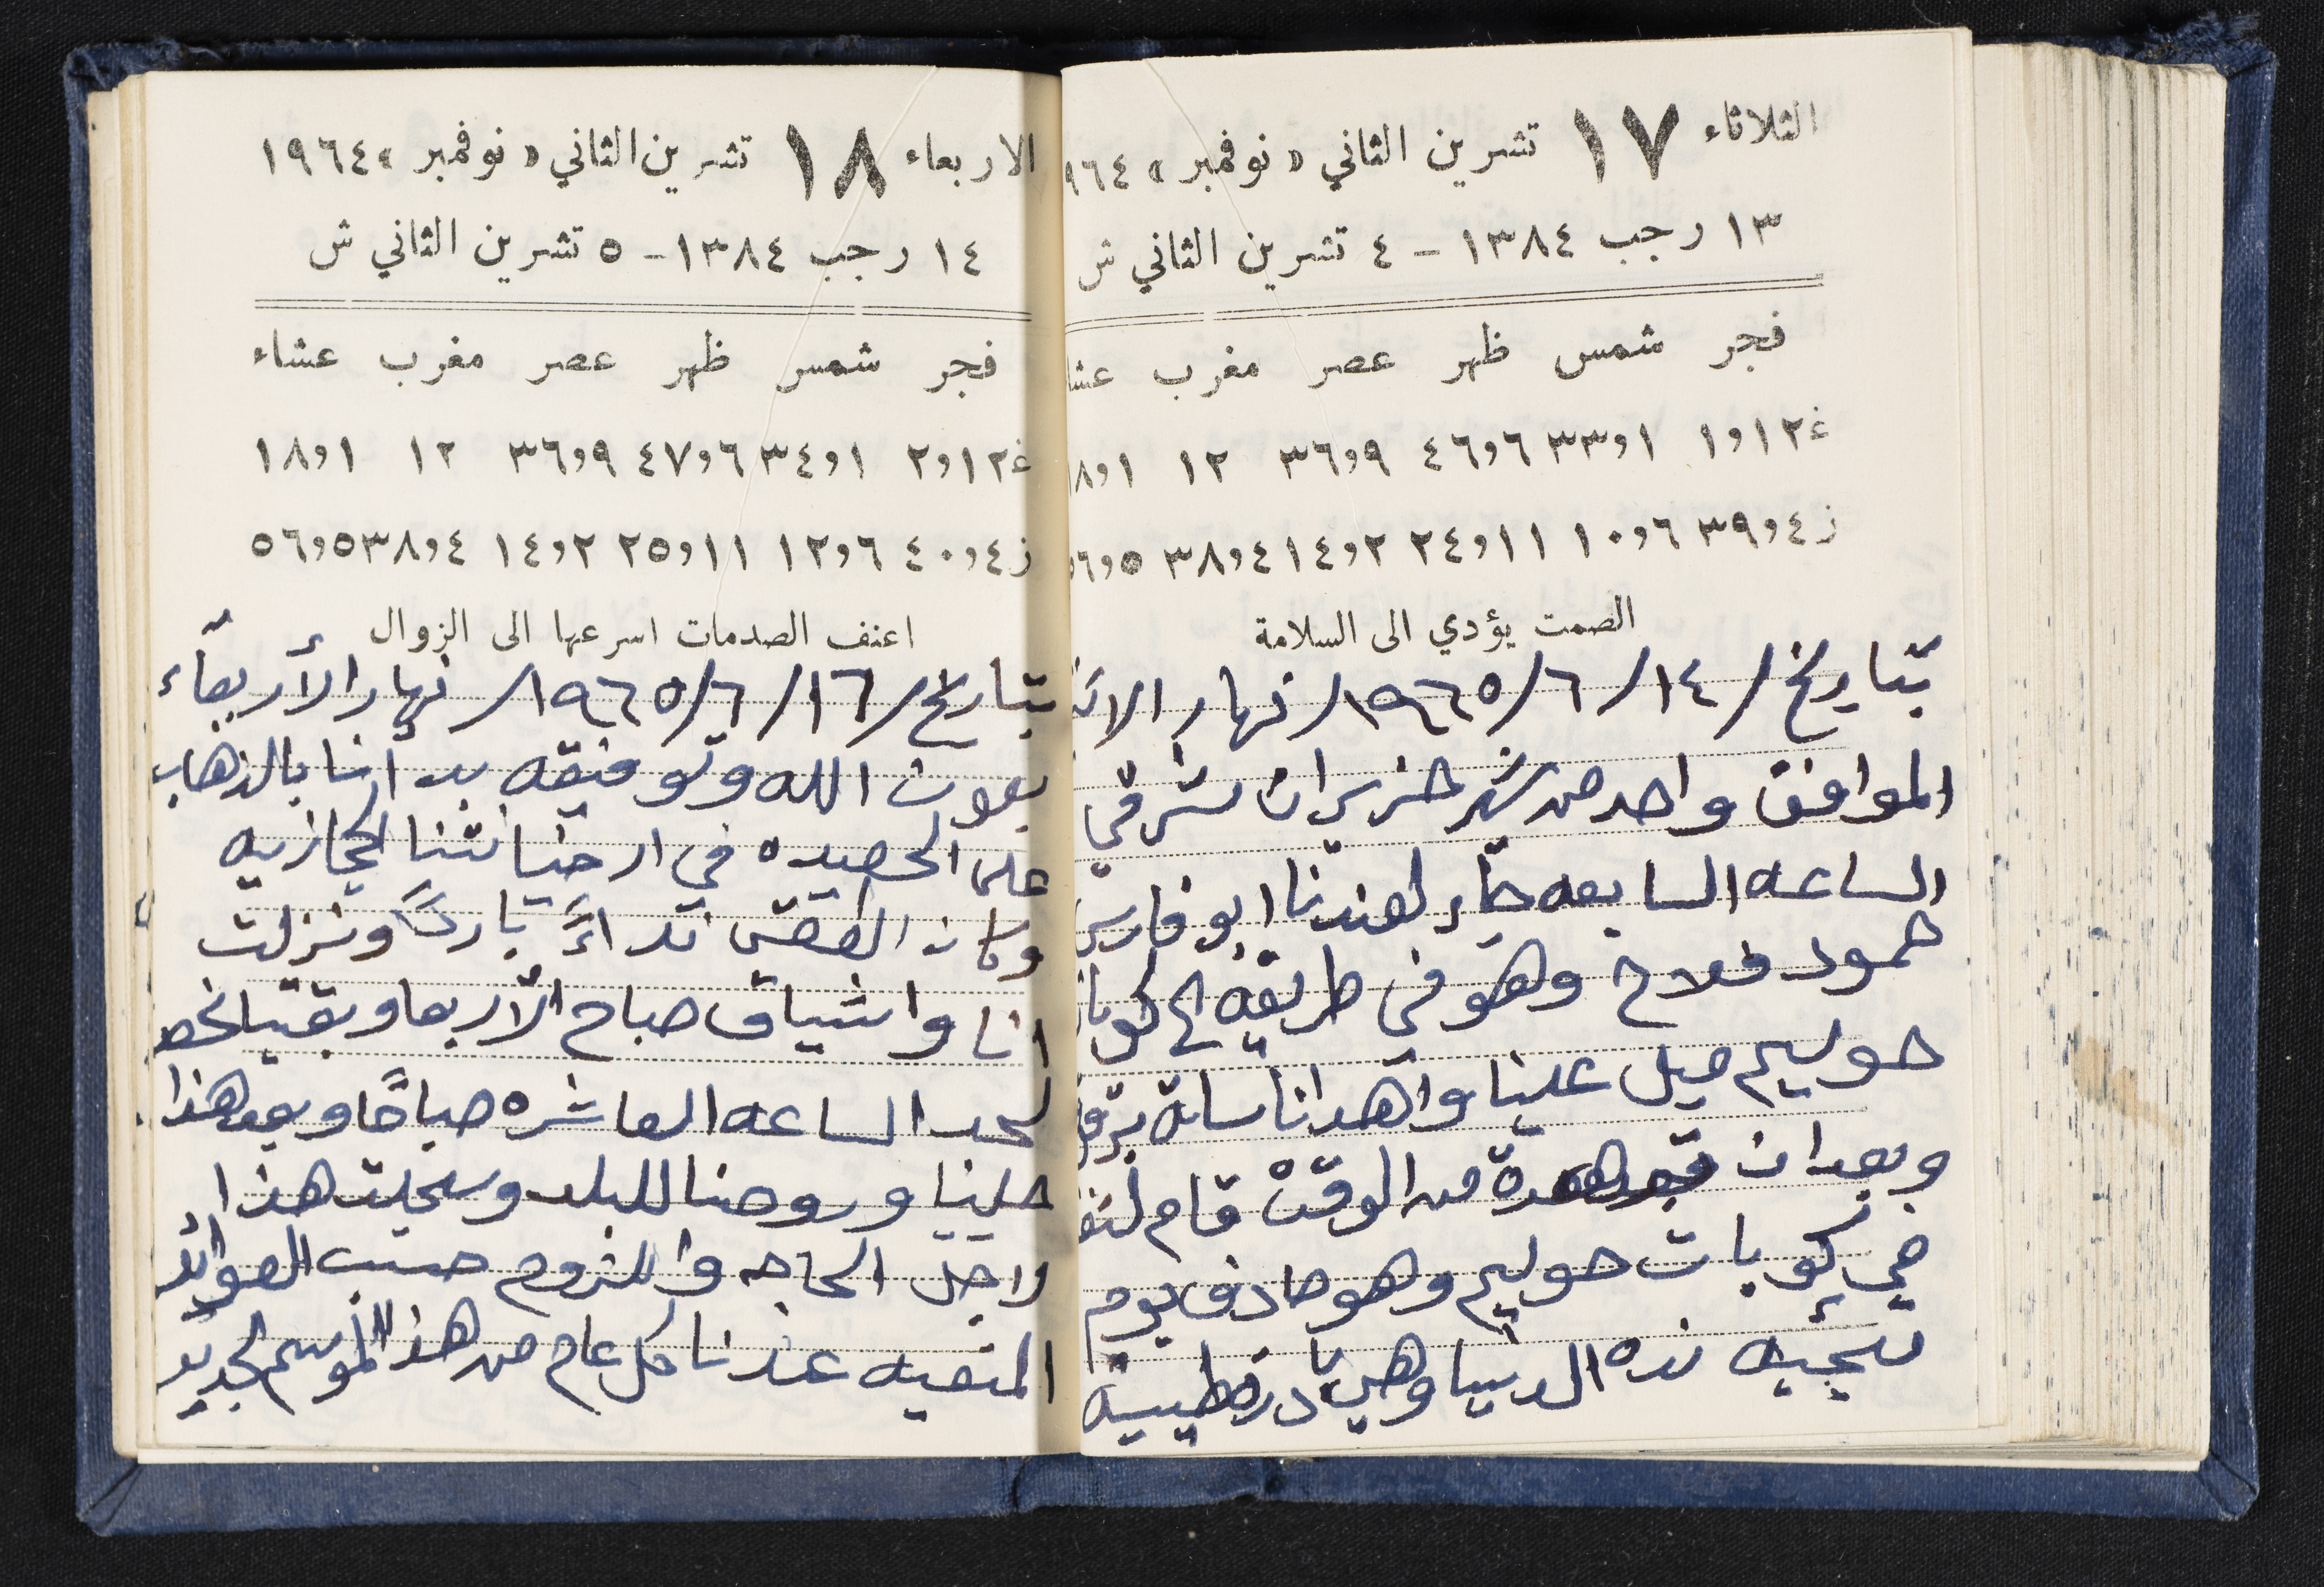 الثلاثاء ١٧ تشرين الثاني « نوفمبر » ٩٦٤
١٣ رجب ١٣٨٤ - ٤ تشرين الثاني ش
فجر شمس ظهر عصر مغرب عشا
غ ١٢و١ ١و٣٣ ٦و٤٦ ٩و٣٦ ١٢ ١و٨
ز ٤و٣٩ ٦و١٠ ١١و٢٤ ٢و١٤ ٤و٣٨ ٥و٦
الصمت يؤدي الى السلامة
بتاريخ /١٤/ ٦/ ١٩٦٥/ نهار الاثن
الموافق واحد من شهر حزيران شرقي
الساعه السابعه جاء لعندنا ابو فارس
حمود فلاح وهو في طريقه الى كوبا
حوليم ميل علينا واهدانا سلة برق
وبعد ان مدة من الوقت قام
في كوبات حوليم وهو صادف يوم
نده الدنيا وهي بادره طيبه
الاربعاء ١٨ تشرين الثاني « نوفمبر » ١٩٦٤
١٤ رجب ١٣٨٤ - ٥ تشرين الثاني ش
فجر شمس ظهر عصر مغرب عشاء
غ ١٢و٢ ١و٣٤ ٦و٤٧ ٩و٣٦ ١٢ ١و١٨
ز ٤و٤٠ ٦و١٢ ١١و٢٥ ٢و١٤ ٤و٣٨ ٥و٥٦
اعنف الصدمات اسرعها الى الزوال
بتاريخ/ ١٦/ ٦/ ١٩٦٥/ نهار الأربعاء
بعون الله وتوفيقه بدأنا بالذهاب
على الحصيده في ارضياتنا الحجازيه
وكان الطقس نداءً بارداً ونزلت
انا واشياق صباح الأربعا وبقينا نحصد
لحد الساعه العاشره صباحًا وبعد هذا
حلينا وروحنا للبلد وسجلت هذا
لاجل الحاجه واللزوم حسب العوائد
المتعبه عندنا كل عام من هذا الموسم الجديد